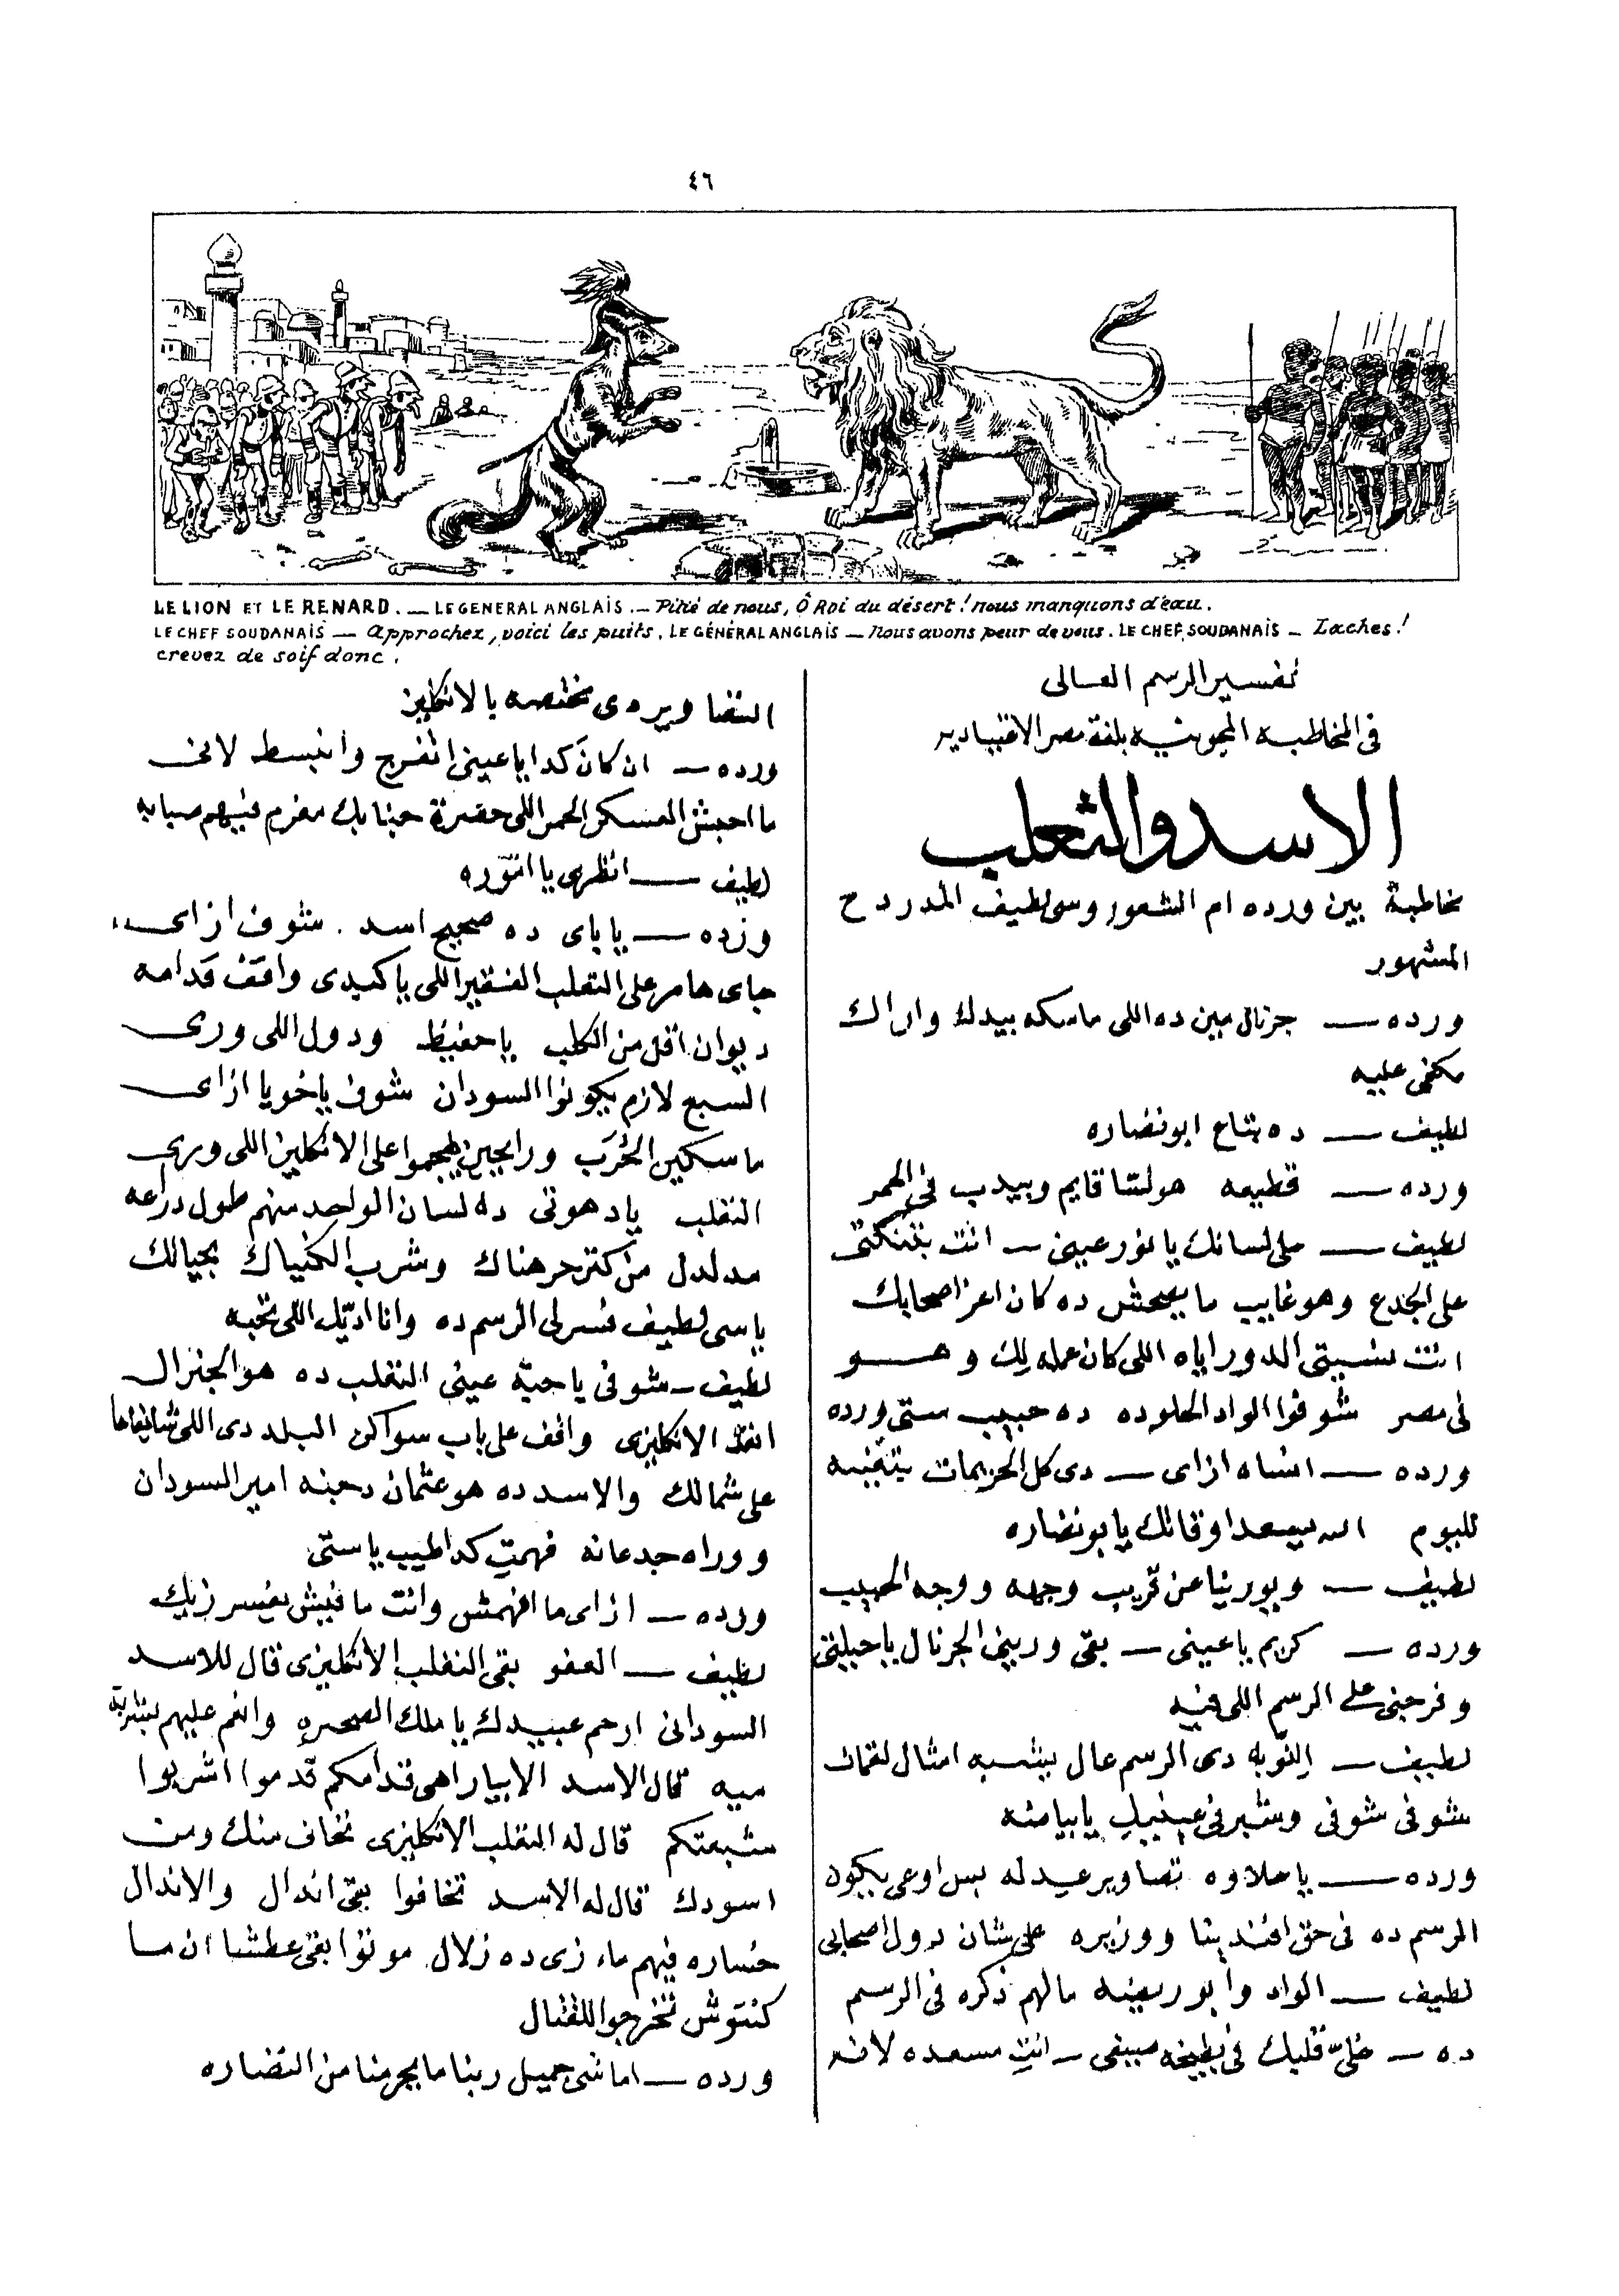 ٤٦
LE LION ET LE RENARD. — LE GENERAL ANGLAIS. — Pitié de nous, Ô Roi du désert! nous manquons d'eau.
LE CHEF SOUDANAIS — Approchez, voici les puits. LE GÉNÉRAL ANGLAIS — Nous avons peur de vous. LE CHEF SOUDANAIS — Laches!
crevez de soif donc.
تفسير الرسم العالى
فى المخاطبه بلغة مصر
الاسد والثعلب
مخاطبة بين ورده ام الشعور وسى لطيف المدردح
المشهور
ورده — جرنال مين ده اللى ماسكه بيدك واراك
مكفى عليه
لطيف — ده بتاع ابونضاره
ورده — قطيعه هو لسا قايم وبيدب فى الحمر
لطيف — على لسانك يا نور عينى — انت بتنكتى
على الجدع وهو غايب ما يصحش ده كان اعز اصحابك
انت نسيتى الدور اياه اللى كان عمله لك وهو
فى مصر شوفوا الواد الحلوده ده حبيب ستى ورده
ورده — انساه ازاى — دى كل الحريمات يتغنيه
لليوم الله يسعد اوقاتك يا بو نضاره
لطيف — ويورينا عن قريب وجهه ووجه الحبيب
ورده — كريم يا عينى — بقى ورينى الجرنال يا حيلتى
وفرجنى على الرسم اللى فيه
لطيف — النوبه دى الرسم عال بيشبه امثال لقمان
شوفى شوفى وشبرقى عينيك يا بيامنه
ورده — يا حلاوه تصاوير عيد له بس اوعى يكون
الرسم ده فى حق افندينا ووزيره على شان دول اصحابى
لطيف — الواد وابو ريضه مالهم ذكره فى الرسم
ده — خلى قلبك فى بطيخه صيفى — انت مسعده لانه
التصاوير دى مختصه بالانكليز
ورده — ان كان كدا يا عينى اتفرج وانبسط لانى
ما احبش العسكر الحمر اللى حضرة جنابك مغرم فيهم صبابه
لطيف — انظرى يا انوره
ورده — يا باى ده صحيح اسد . شوف ازاى
جاى هامر على التعلب الفقير اللى يا كبدى واقف قدامه
ديوان اقل من الكلب يا حفيظ ودول اللى ورى
السبع لازم يكونوا السودان شوف يا خويا ازاى
ماسكين الحُرَب ورايحين يهجموا على الانكليز اللى ورى
التعلب يا دهوتى ده لسان الواحد منهم طول دراعه
مدلدل من كتر حر هناك وشرب الكنياك بحيالك
يا سى لطيف فسر لى الرسم ده وانا اديلك اللى تحبه
لطيف — شوفى يا حبة عينى التعلب ده هو الجنرال
الانكليزى واقف على باب سواكن البلد دى اللى شايفاها
على شمالك والاسد ده هو عثمان دجنه امير السودان
ووراه جدعانه فهمت كدا طيب يا ستى
ورده — ازاى ما افهمش وانت ما فيش يفسر زيك
لطيف — العفو بقى التعلب الانكليزى قال للاسد
السودانى ارحم عبيدك يا ملك الصحره وانعم عليهم بشربة
ميه قال الاسد الابيار اهى قدامكم قدموا اشربوا
شبعتكم قال له التعلب الانكليزى نخاف منك ومن
اسودك قال له الاسد تخافوا بقى اندال والاندال
خساره فيهم ماء زى ده زلال موتوا بقى عطشا ان ما
كنتوش تخرجوا للقتال
ورده — اما شى جميل ربنا ما يحرمنا من النضاره